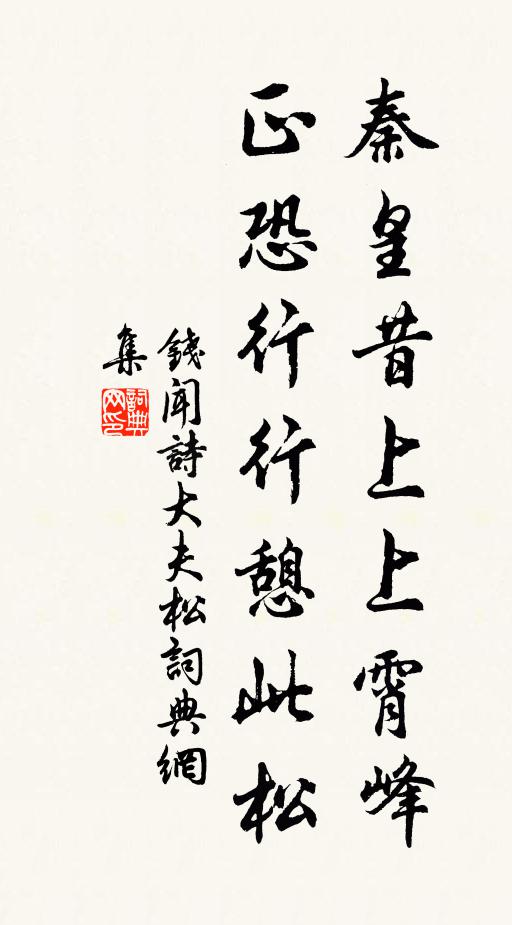 秦皇昔上上霄峰
正恐行行憩此松
錢聞詩大夫松詞典網
集
詞典
网印